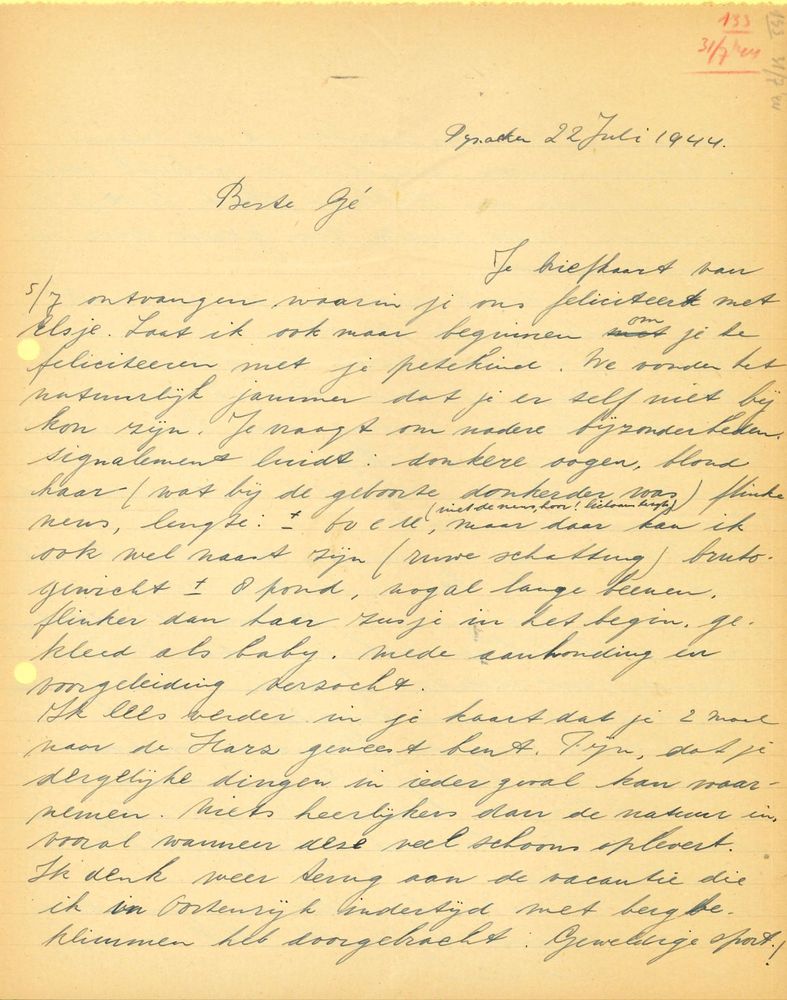 133
31/7 '44
Pijnacker 22 Juli 1944.
Beste Gé
Je briefkaart van
5/7 ontvangen waarin je ons feliciteert met
Elsje. Laat ik ook maar beginnen om je te
feliciteeren met je petekind. We vonden het
natuurlijk jammer dat je er self niet bij
kon zijn. Je vraagt om nadere bijzonderheden.
Signalement luidt: donkere oogen, blond
haar (wat bij de geboorte donkerder was) flinke
neus, lengte: ± 60 c M, (niet de neus hoor!) maar daar kan ik
ook wel naast zijn (ruwe schatting) bruto-
gewicht ± 8 pond, nogal lange beenen,
flinker dan haar zusje in het begin. ge-
kleed als baby. Mede aanhouding en
voorgeleiding verzocht.
Ik lees verder in je kaart dat je 2 maal
naar de Harz geweest bent. Fijn, dat je
dergelijke dingen in ieder geval kan waar-
nemen. Niets heerlijkers dan de natuur in,
vooral wanneer deze veel schoons oplevert.
Ik denk weer terug aan de vacantie die
ik in Oostenrijk indertijd met bergbe-
klimmen heb doorgebracht: Geweldige sport!